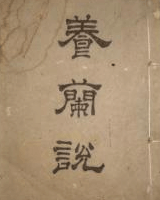 養蘭說